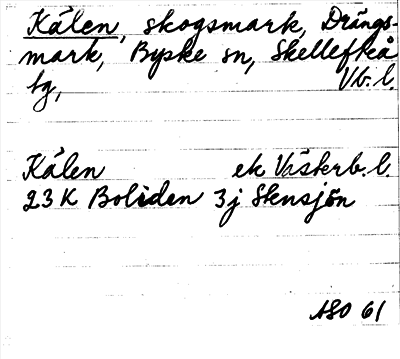 Kålen, skogsmark, Drängs-
mark, Byske sn, Skellefteå
tg, Vb. l.
Kålen ek Västerb. l.
23 K Boliden 3j Stensjön
ASO 61